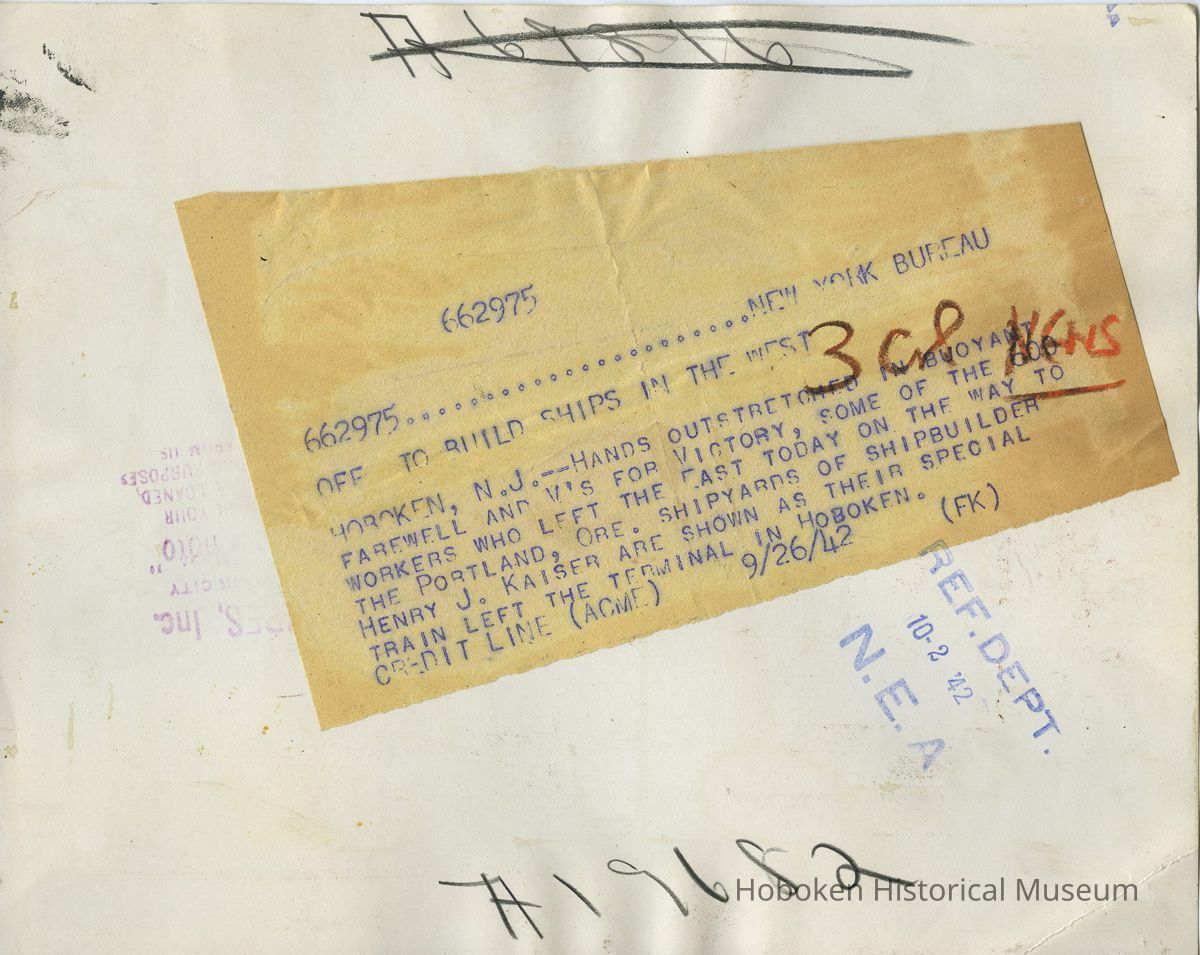 662975
662975..............................NEW YORK BUREAU
OFF TO BUILD SHIPS IN THE WEST
3 col NEWS
HOBOKEN, N.J.--HANDS OUTSTRETCHED IN BUOYANT
FAREWELL AND V'S FOR VICTORY, SOME OF THE 600
WORKERS WHO LEFT THE EAST TODAY ON THE WAY TO
THE PORTLAND, ORE. SHIPYARDS OF SHIPBUILDER
HENRY J. KAISER ARE SHOWN AS THEIR SPECIAL
TRAIN LEFT THE TERMINAL IN HOBOKEN.
CREDIT LINE (ACME) 9/26/42 (FK)
REF. DEPT.
10-2 '42
N. E. A
, Inc.
CITY
hoto"
YOUR
LOANED,
PURPOSES
FROM US
Hoboken Historical Museum